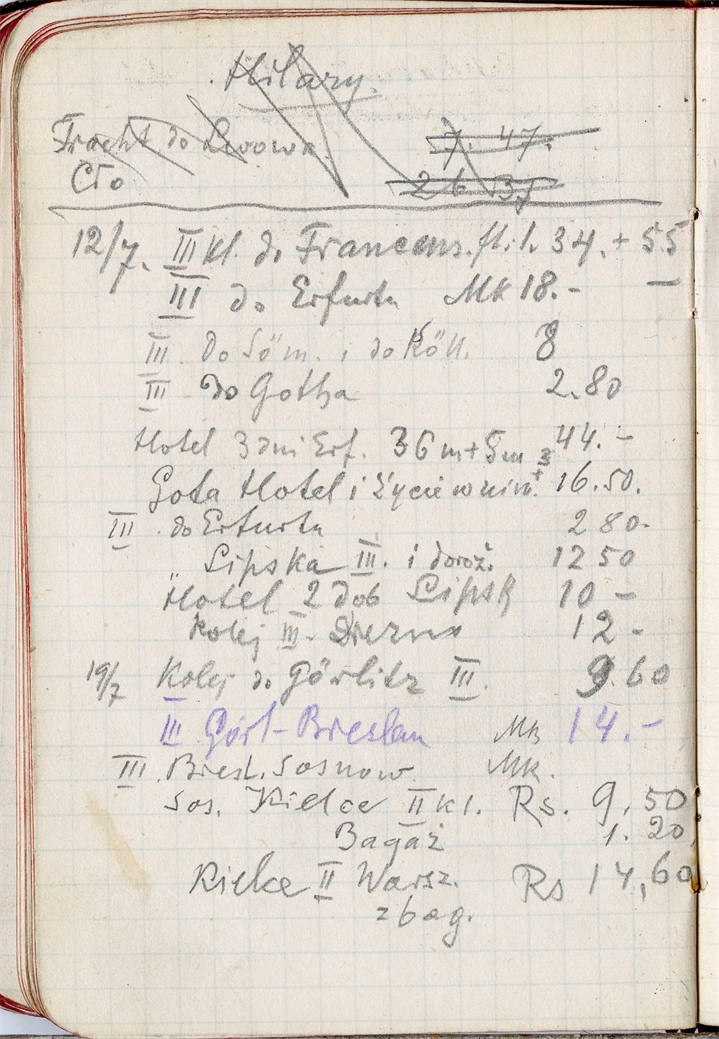 Hilary.
Fracht do Lwowa. 7. 47.
Cło 26 37
12/7. III kl. do Francens. fl. 1. 34. + 55
III do Erfurtu Mk 18.- —
III. do Söm. i do Köll. 8
III do Gotha 2.80
Hotel 3 dni Erf. 36 m + 5 m + 3 44.-
Gota Hotel i życie w nim. 16.50.
III. do Erfurtu 2 80-
" Lipska III. i doroż. 12 50
Hotel 2 dob Lipsk 10 -
Kolej III- 12-
19/7 Kolej do Görlitz III. 9.60
III Görl-Breslau Mk 14.-
III. Bresl. Sosnow. Mk.
Sos. Kielce II kl. Rs. 9,50
Bagaż 1. 20,
Kielce II Warsz. Rs 14,60
z bag.